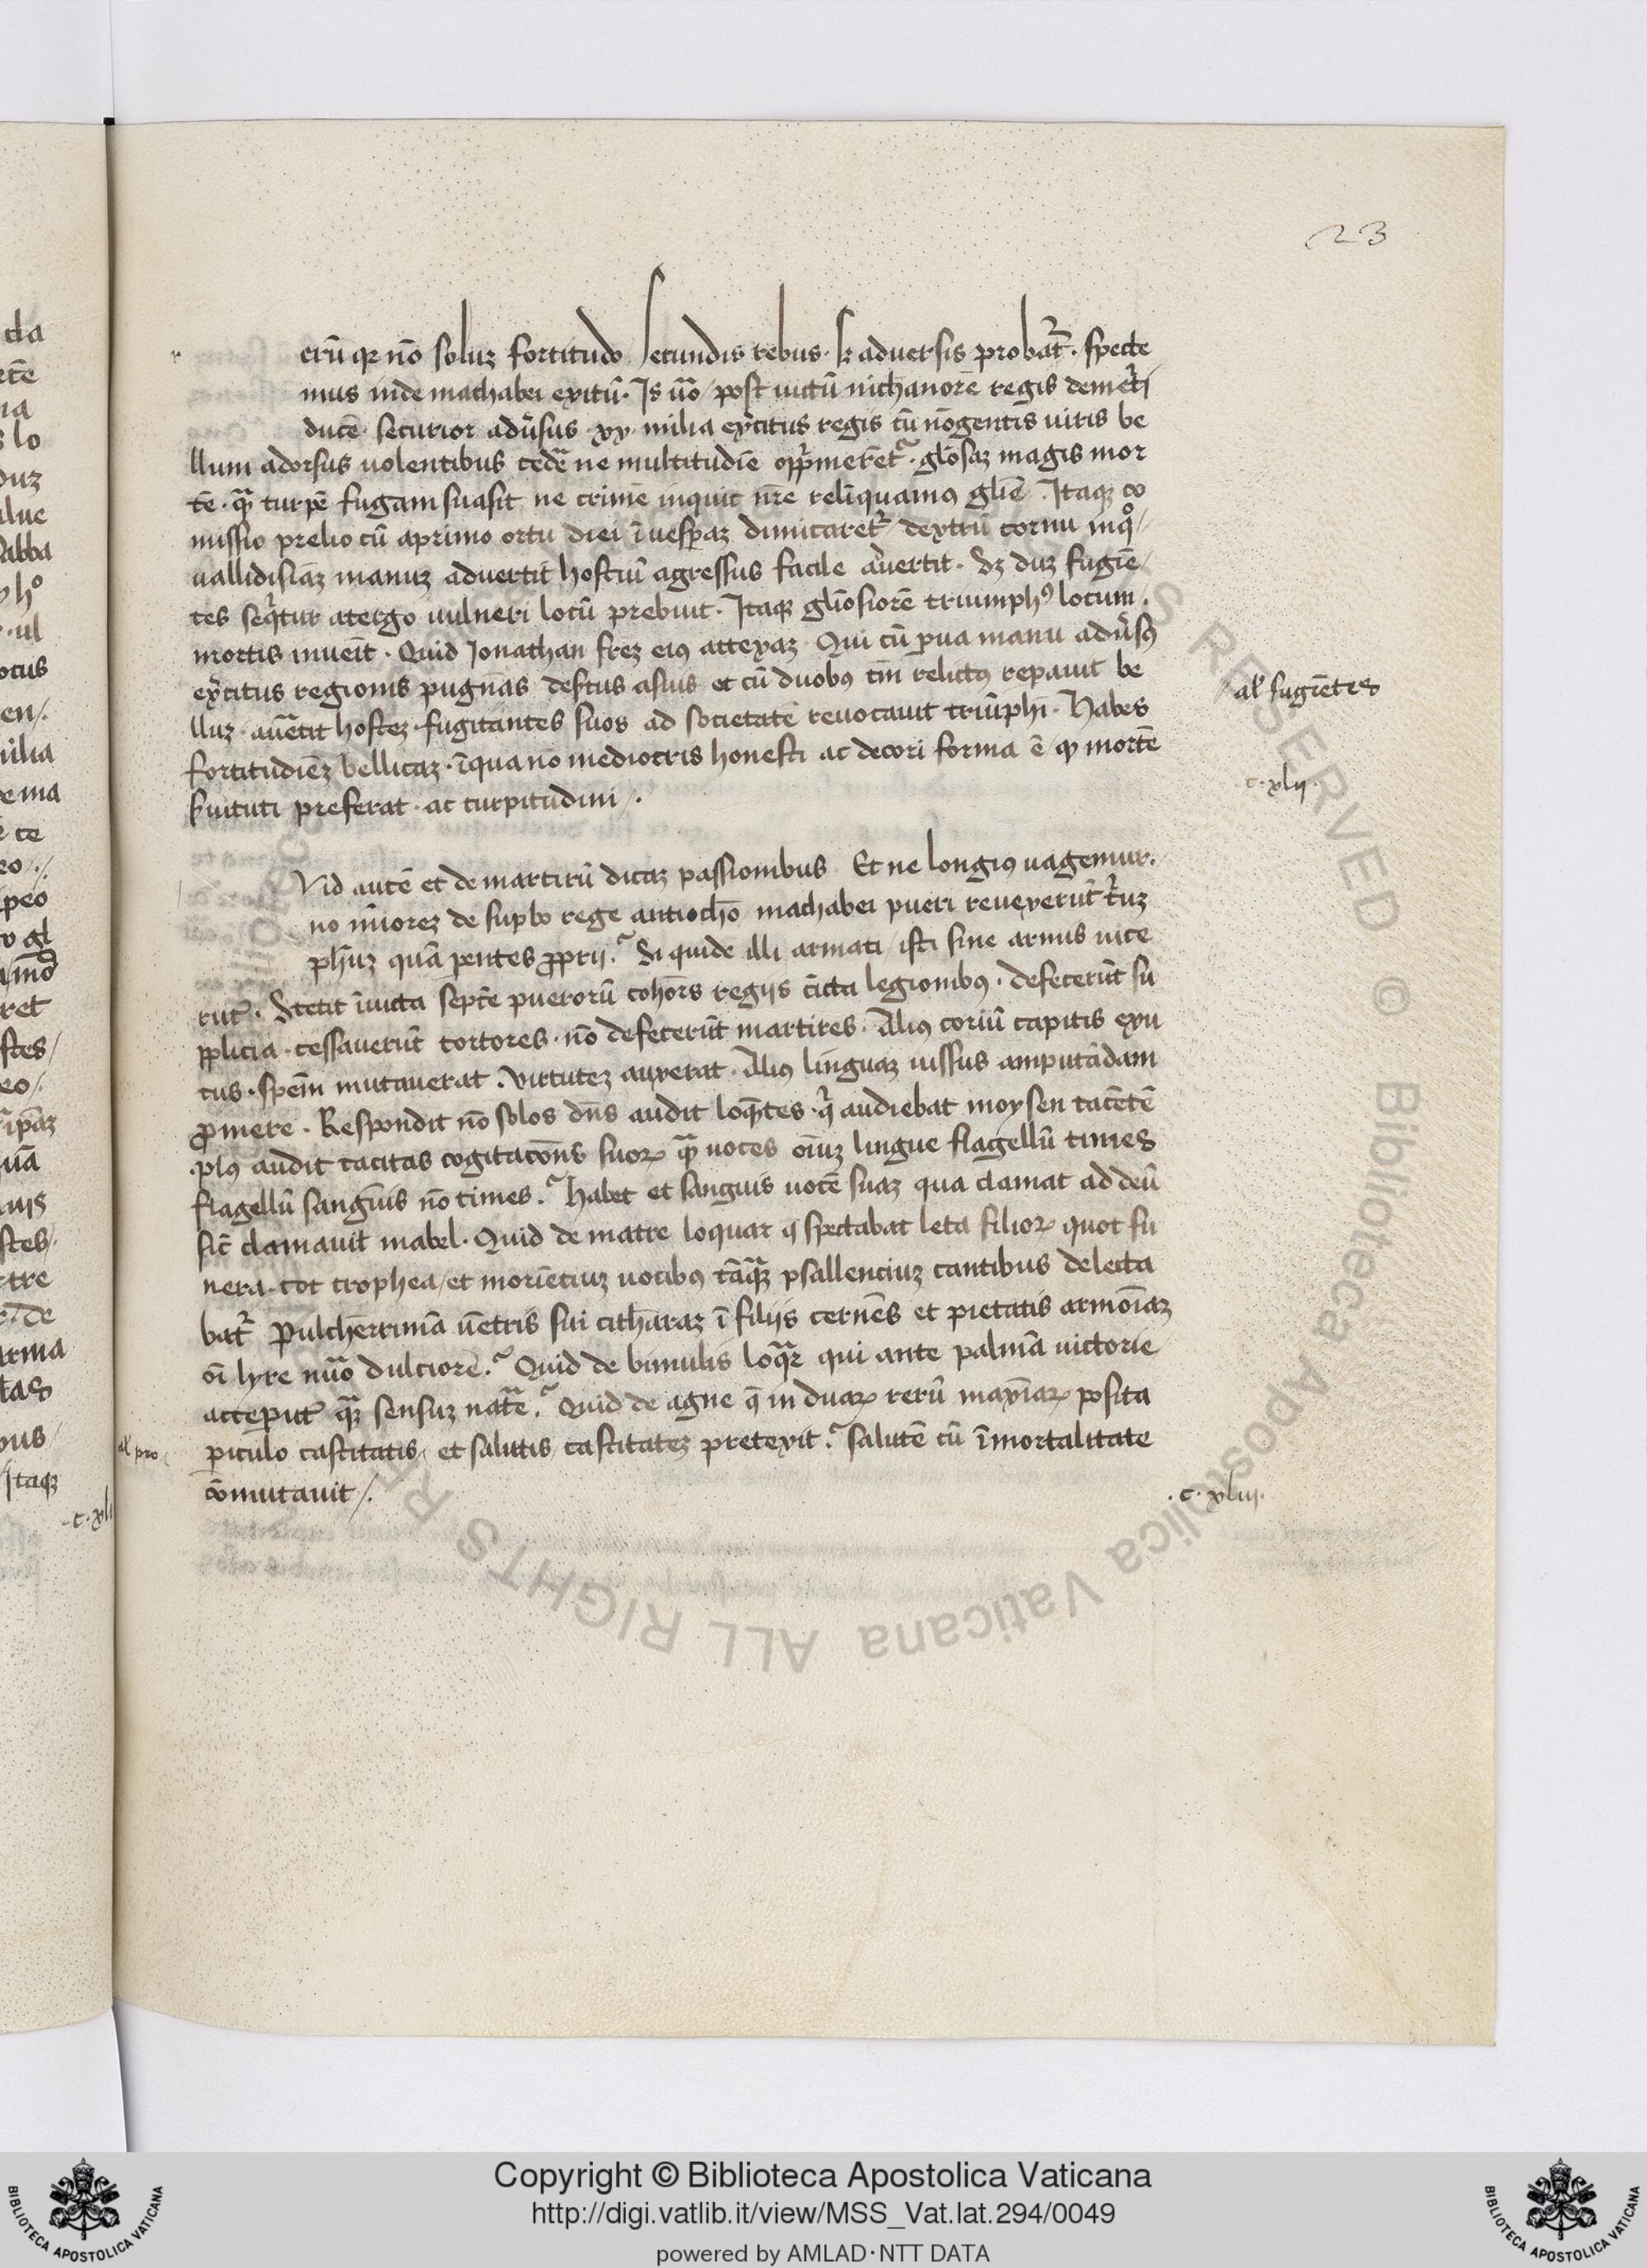 23
erū qr nō soluz fortitudo secundis rebus · sz adversis probat̄ · specte
mus inde machabei exitū · Is ūo / post uictū nichanorē regis demetri
ducē · securior adūsus · xx · milia ex̄citus regis cū nōgentis uiris be
llum adorsus uolentibus cedē ne multitudīe opp̄merēt̄ · gl̄osaz magis mor
tē · qᷓ turpē fugam suasit ne crimē inquit nr̄e relīquamꝰ gl̄ie · Itaqꝫ co
missio prelio cū a primo ortu diei ī uesꝑaz dimicaret̄ / dextrū cornu inqͦ /
uallidissīaz manuz advertit hostiū agressus facile av̄ertit · Sꝫ duz fugiē /
tes seq̄tur a tergo uulneri locū prebuit · Itaqꝫ gl̄iosiorē triumphꝰ locum ·
mortis inueīt · Quid Ionathan frēz eiꝰ attexaz · Qui cū ꝑua manu adūsꝰ
ex̄citus regionis pugnās desertus a suis et cū duobꝰ tm̄ relictꝰ reꝑauit be
lluz · aūtit hostez · fugitantes suos ad societatē reuocauit triūphi · Habes
fortitudīez bellicaz · ī qua nō mediocris honesti ac decori forma ē / qꝫ mortē
ẜuituti preferat · ac turpitudini / ·
al̄ fugiētes
c · xlij ·
Vid autē et de martirū dicaz passionibus Et ne longiꝰ uagemur ·
no mīorez de suꝑbo rege antiochō machabei pueri reuexerūt t̄uz
ph̄uz quā parentes ꝓprij ·? Si quidē illi armati / isti sine armis uice
rūt · Stetit īuicta septē puerorū cohors regijs cīcta legionibꝰ · defecerūt su
pplicia · cessaverūt tortores · nō defecerūt martires · Aliꝰ coriū capitis exu
tus · spēm mutauerat · virtutez auxerat · Aliꝰ linguaz iussus amputādam
ꝓmere · Respondit nō solos dn̄s audit loqn̄tes · q̄ audiebat moysen tacētē
· plꝰ audit tacitas cogitacōns suoꝝ qᷓ uoces oīuz lingue flagellū times
flagellū sangīnis nō times ·? habet et sanguis uocē suaz qua clamat ad deū
sic̄ clamauit in abel · Quid de matre loquar q̄ spectabat leta filioꝝ quot fu
nera · tot trophea / et moriētiuz uocibꝰ tāqᷓz psallenciuz cantibus delecta
bat̄ Pulcherrimā uētris sui citharaz ī filijs cernēs et pietatis armonīaz
oī lyre nūo dulciorē ·? Quid de bimulis loqᷓr qui ante palmā uictorie
acceꝑūt qᷓz sensuz nat̄e ·? Quid de agne q̄ in duaꝝ rerū maxīaꝝ posita
al̄ pro
ꝑiculo castitatis / et salutis / castitatez pretexit ·? salutē cū īmortalitate
cōmutauit / ·
· c · xliij ·
Copyright © Biblioteca Apostolica Vaticana
http://digi.vatlib.it/view/MSS_Vat.lat.294/0049
powered by AMLAD·NTT DATA
BIBLIOTECA APOSTOLICA VATICANA
BIBLIOTECA APOSTOLICA VATICANA
© Biblioteca Apostolica Vaticana ALL RIGHTS RESERVED